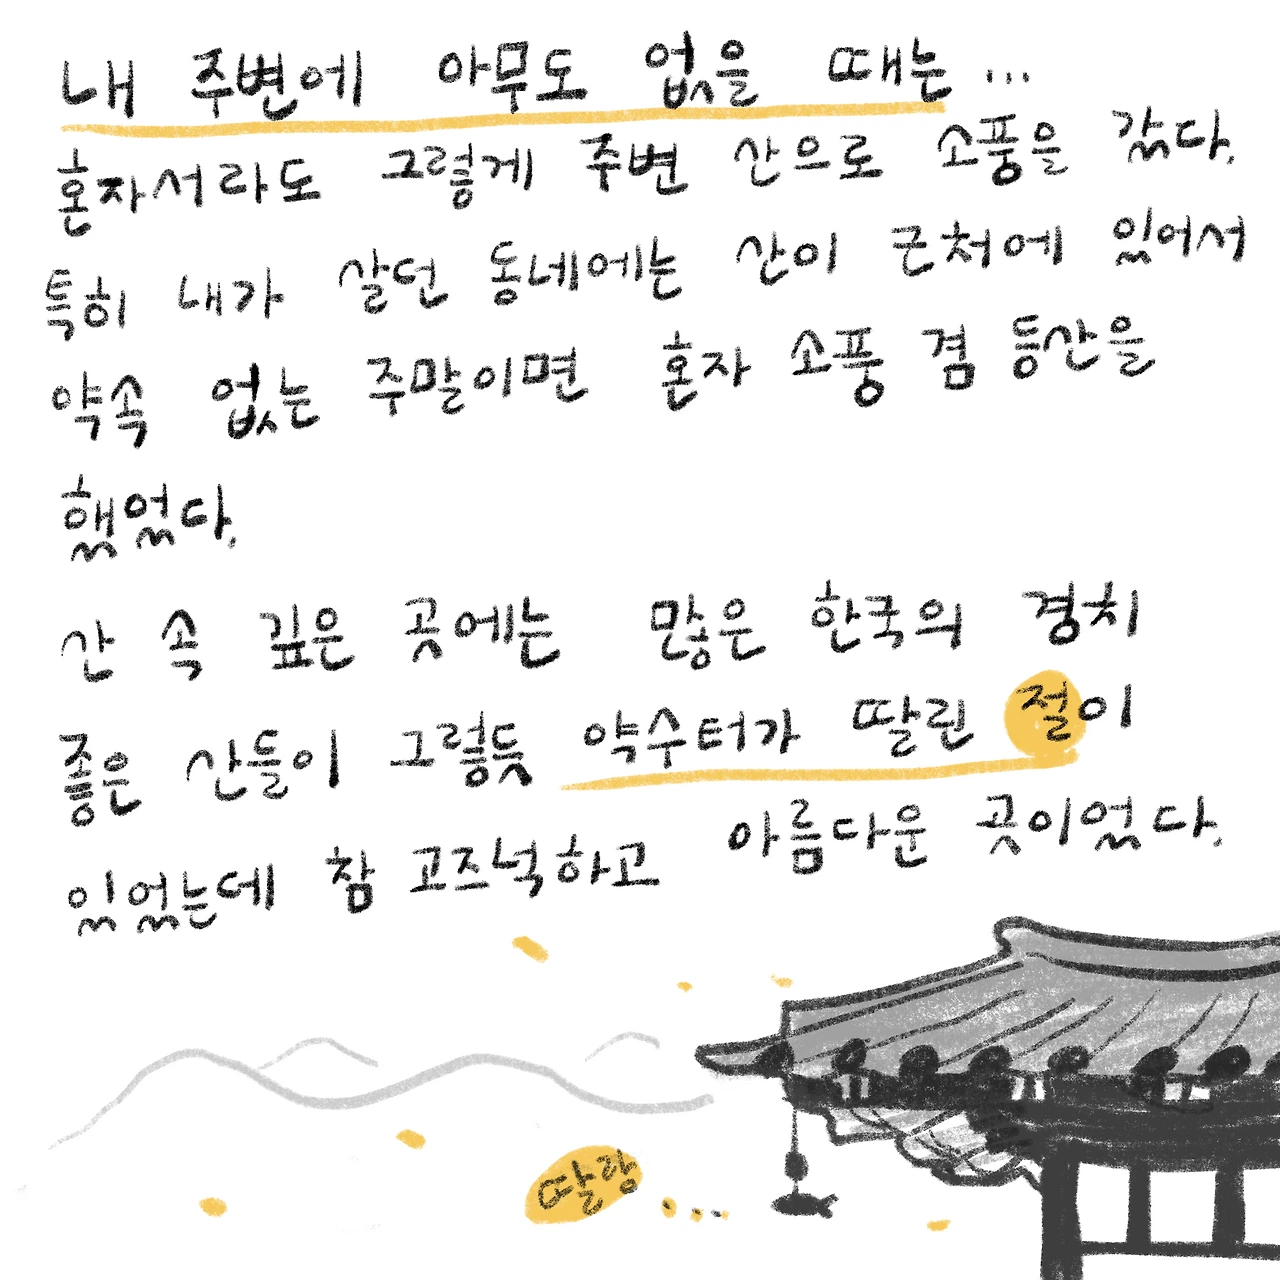 내 주변에 아무도 없을 때는...
혼자서라도 그렇게 주변 산으로 소풍을 갔다.
특히 내가 살던 동네에는 산이 근처에 있어서
약속 없는 주말이면 혼자 소풍 겸 등산을
했었다.
산 속 깊은 곳에는 많은 한국의 경치
좋은 산들이 그렇듯 약수터가 딸린 절이
있었는데 참 고즈넉하고 아름다운 곳이었다.
딸랑....